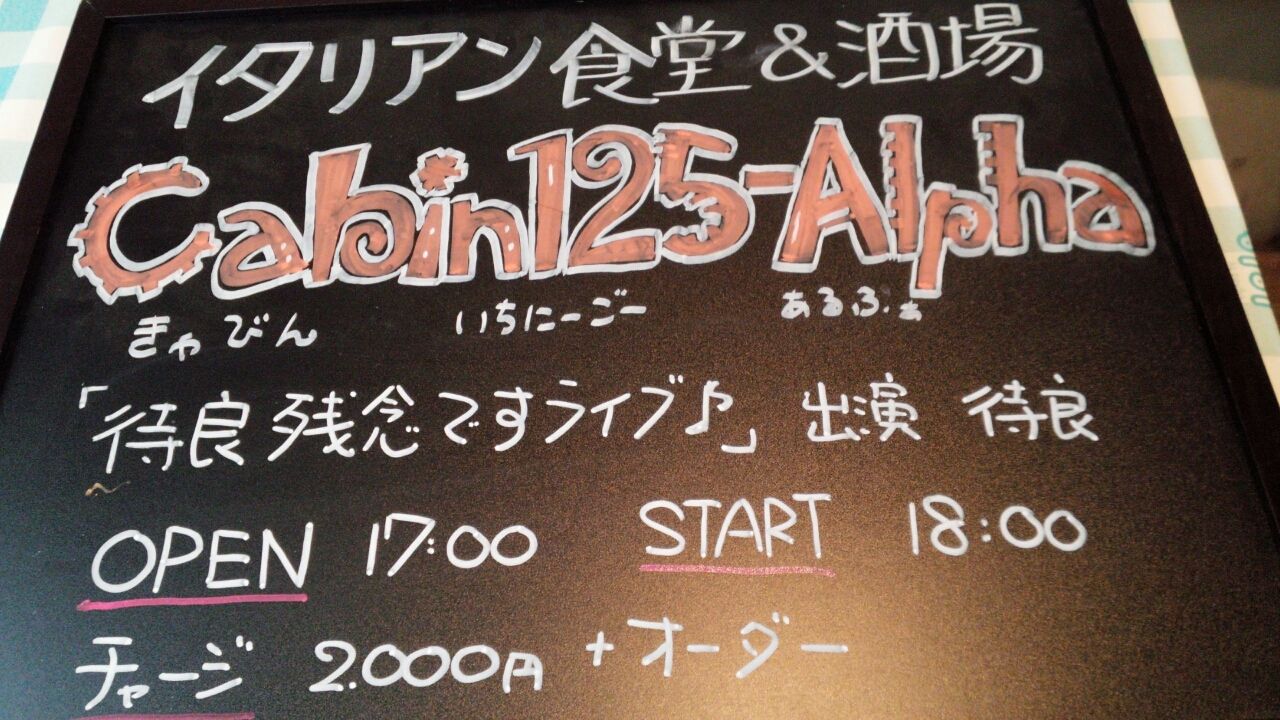 イタリアン食堂&酒場
Cabin125-Alpha
きゃびん いちにーごー あるふぁ
「待良残念ですライブ♪」 出演 待良
OPEN 17:00 START 18:00
チャージ 2.000円 + オーダー